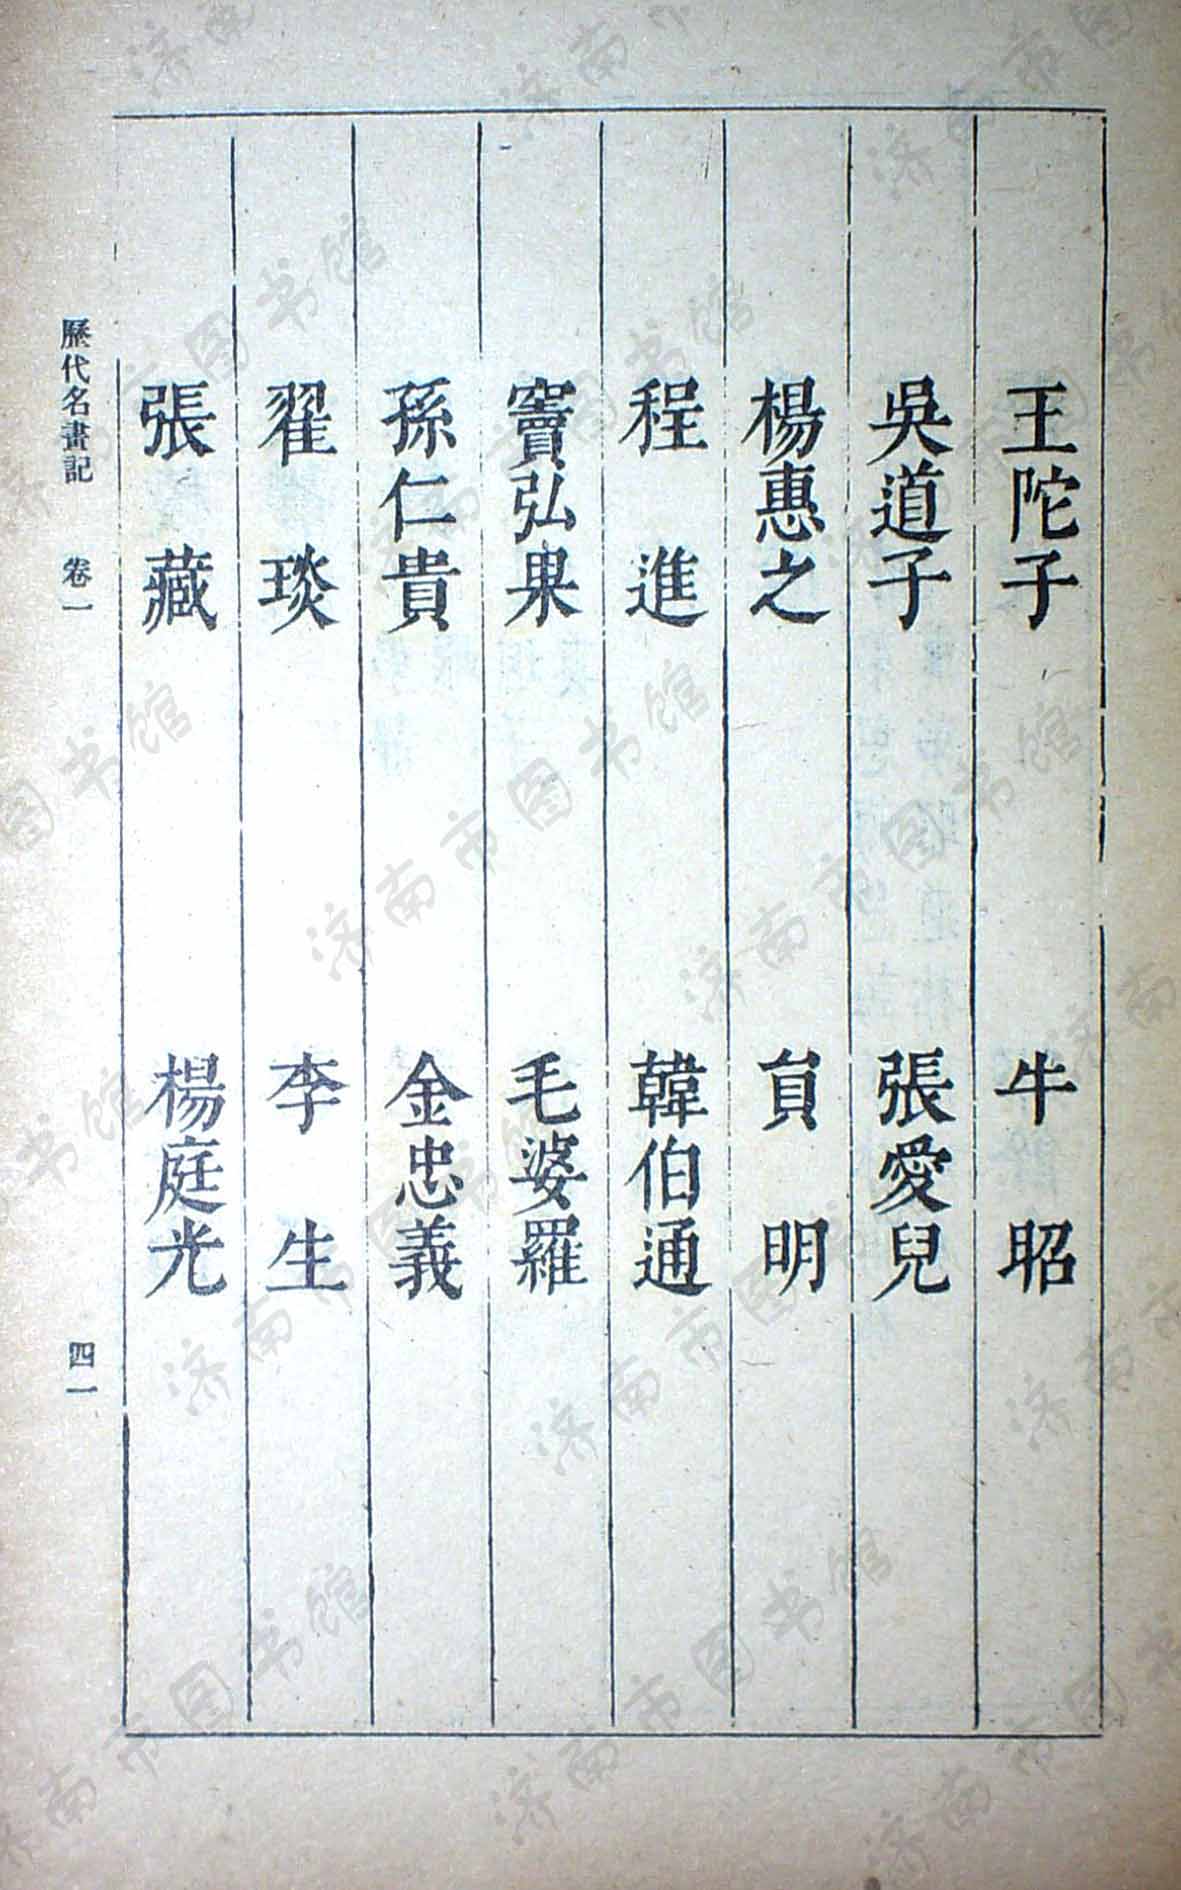 王陀子　牛昭
吳道子　張愛兒
楊惠之　貟明
程進　韓伯通
竇弘果　毛婆羅
孫仁貴　金忠義
翟琰　李生
張藏　楊庭光
歷代名畫記　卷一　四一
济南市图书馆